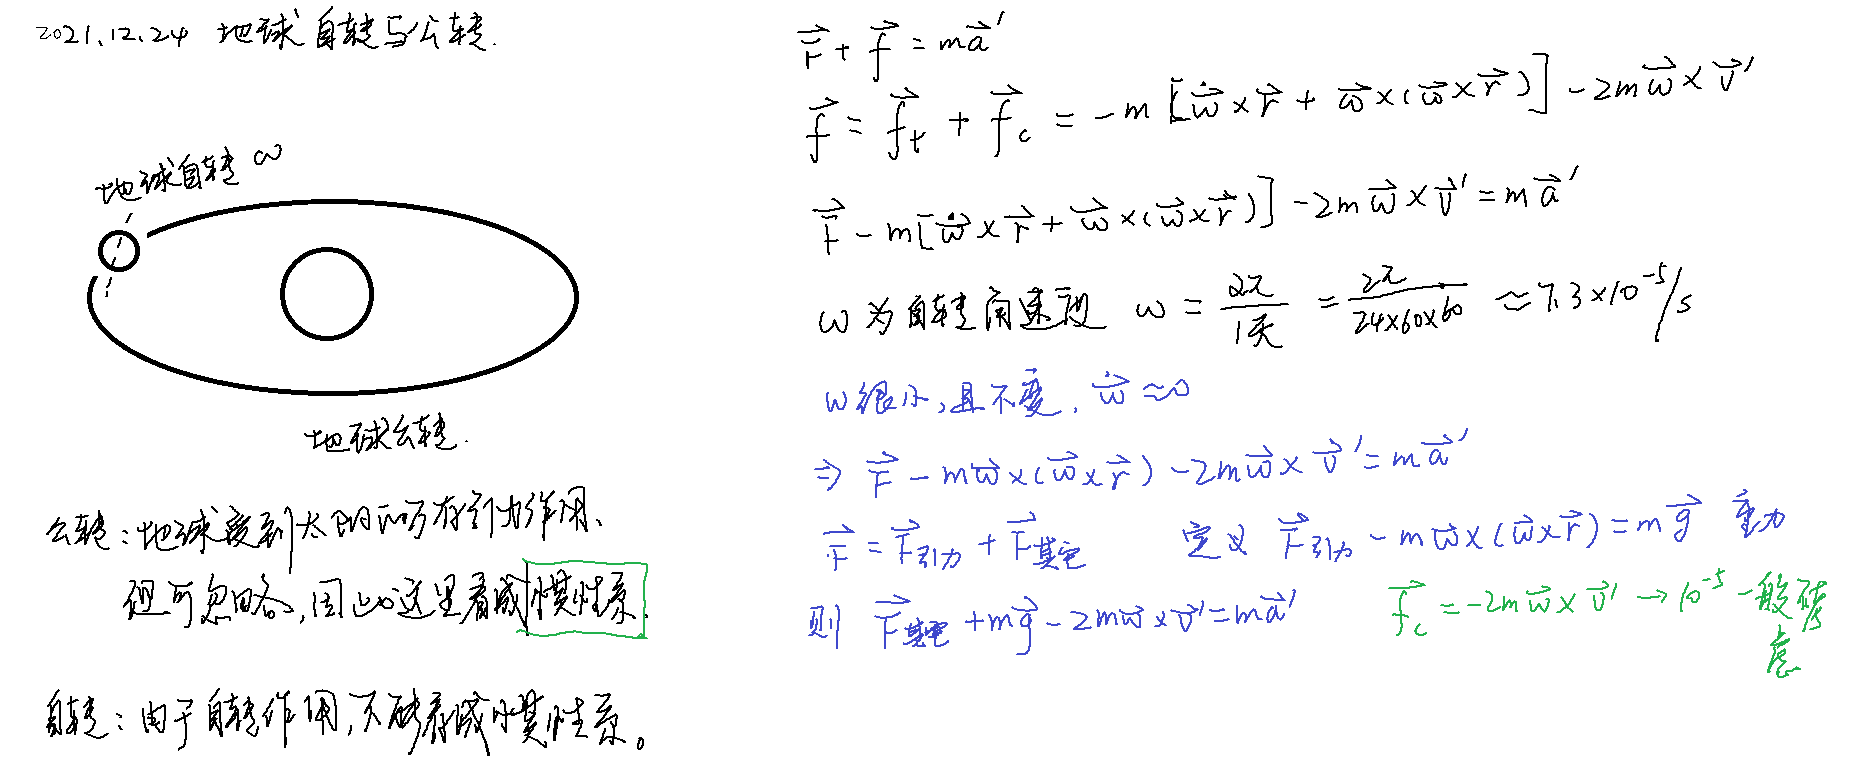 2021.12.24 地球自转与公转.
地球自转 ω
地球公转.
公转：地球受到太阳的万有引力作用、
但可忽略，因此这里看成惯性系.
自转：由于自转作用，不能看成惯性系。
$\vec{F} + \vec{f} = m\vec{a}'$
$\vec{f} = \vec{f}_t + \vec{f}_c = -m[\dot{\vec{\omega}} \times \vec{r} + \vec{\omega} \times (\vec{\omega} \times \vec{r})] - 2m\vec{\omega} \times \vec{v}'$
$\vec{F} - m[\dot{\vec{\omega}} \times \vec{r} + \vec{\omega} \times (\vec{\omega} \times \vec{r})] - 2m\vec{\omega} \times \vec{v}' = m\vec{a}'$
ω 为自转角速度 $\omega = \frac{2\pi}{1天} = \frac{2\pi}{24 \times 60 \times 60} \approx 7.3 \times 10^{-5}/s$
ω很小，且不变. $\dot{\vec{\omega}} \approx 0$
$\Rightarrow \vec{F} - m\vec{\omega} \times (\vec{\omega} \times \vec{r}) - 2m\vec{\omega} \times \vec{v}' = m\vec{a}'$
$\vec{F} = \vec{F}_{引力} + \vec{F}_{其它}$ 定义 $\vec{F}_{引力} - m\vec{\omega} \times (\vec{\omega} \times \vec{r}) = m\vec{g}$ 重力
则 $\vec{F}_{其它} + m\vec{g} - 2m\vec{\omega} \times \vec{v}' = m\vec{a}'$
$\vec{f}_c = -2m\vec{\omega} \times \vec{v}' \to 10^{-5}$ 一般
虑